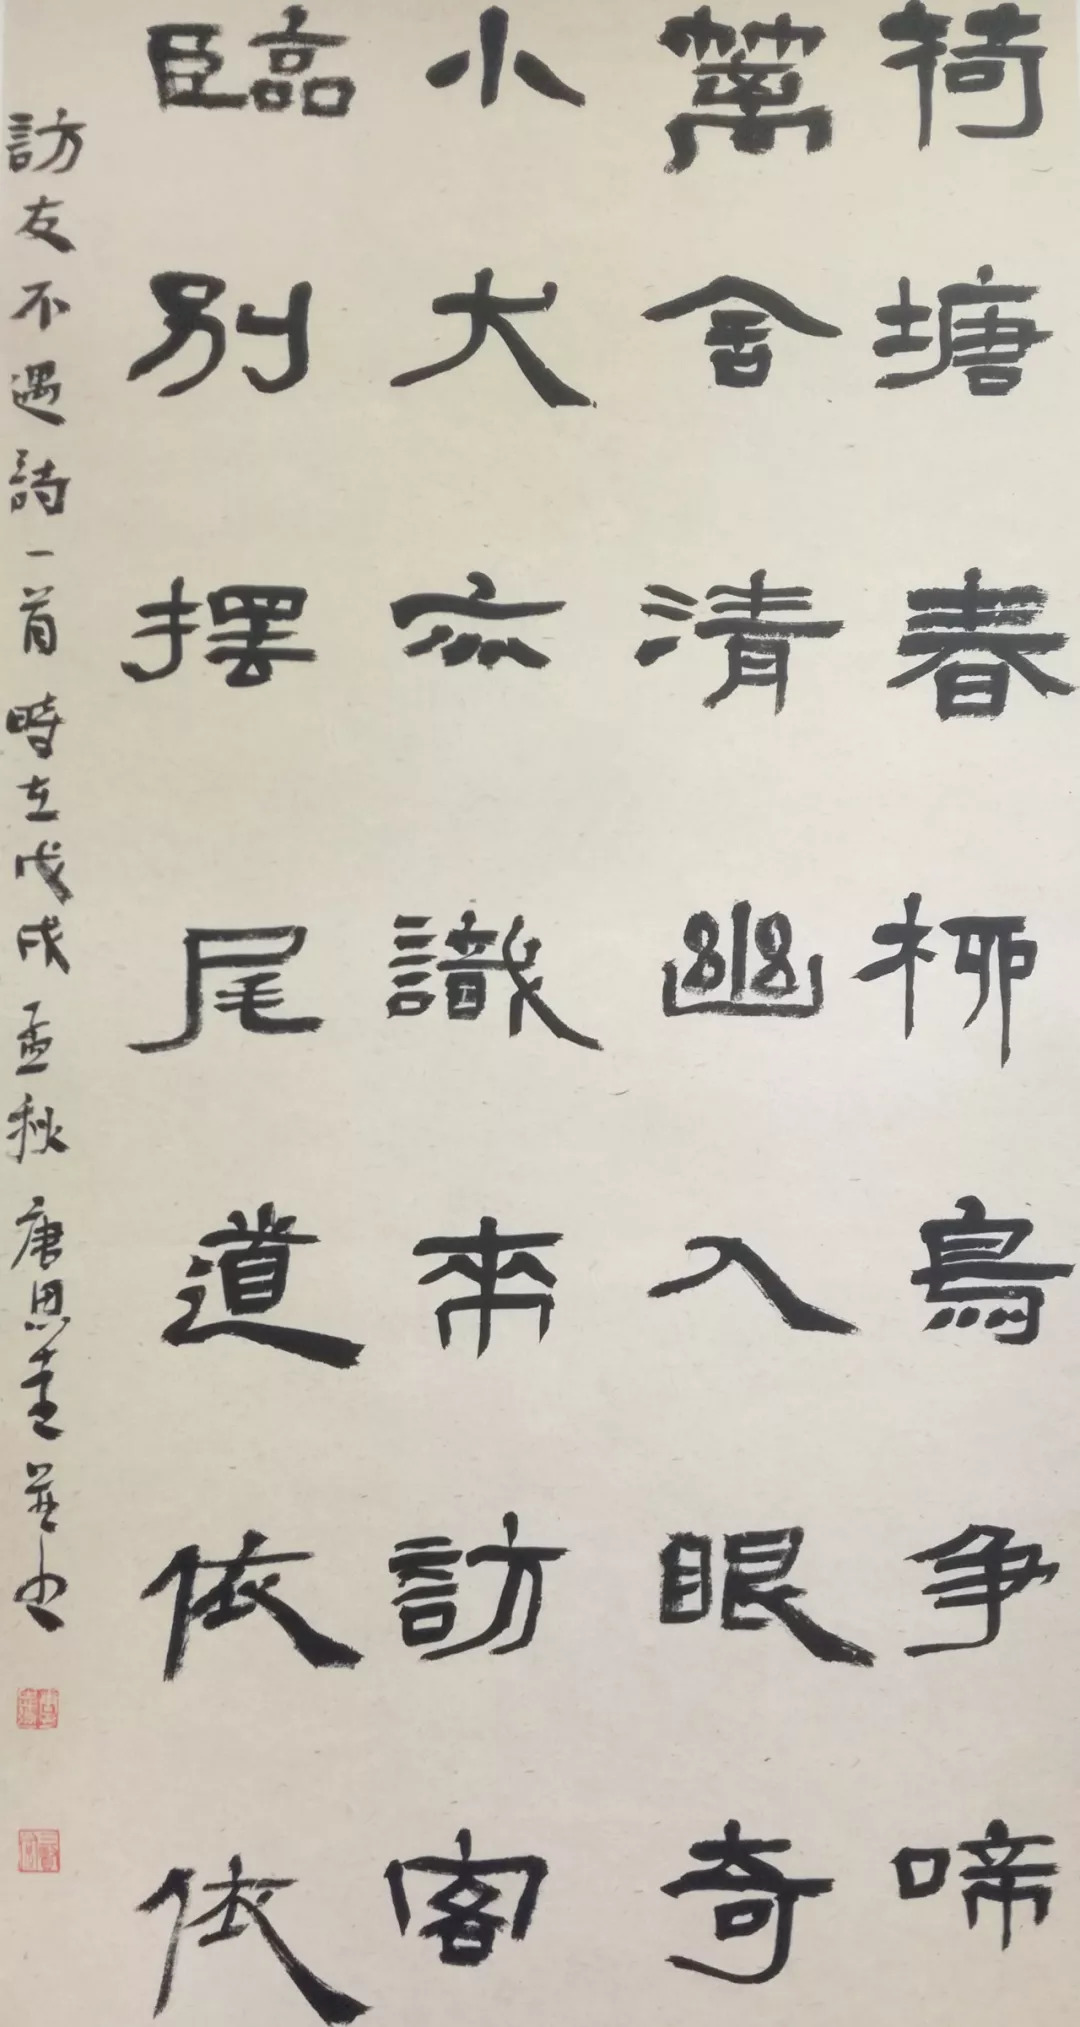 犄塘春柳鳥争啼
篱舍清幽入眼奇
小犬亦識来訪客
臨别摆尾道依依
訪友不遇詩一首時在戊戌孟秋唐思並书